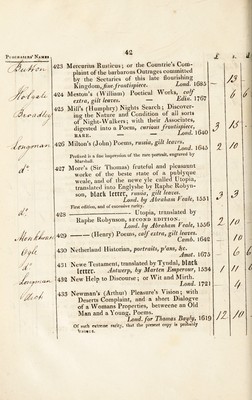 42
PURCHASERS' NAMES
£ s. d.
Button 423 Mercurius Rusticus; or the Countrie's Com-
plaint of the barbarous Outrages committed
by the Sectaries of this late flourishing
Kingdom, fine frontispiece. Lond. 1685 13
424 Meston's (William) Poetical Works, calf
extra, gilt leaves. — Edin. 1767 6 6
Broadly 425 Mill's (Humphry) Nights Search; Discover-
ing the Nature and Condition of all sorts
of Night-Walkers; with their Associates,
digested into a Poem, curious frontispiece,
RARE. — — Lond. 1640 3 15
Longman 426 Milton's (John) Poems, russia, gilt leaves.
Lond. 1645 2 10
Prefixed is a fine impression of the rare portrait, engraved by
Marshall.
do 427 More's (Sir Thomas) frateful and pleasaunt
worke of the beste state of a publyque
weale, and of the newe yle called Utopia,
translated into Englyshe by Raphe Robyn-
son, black letter, russia, gilt leaves.
Lond. by Abraham Veale, 1551
First edition, and of excessive rarity.
do 428 ——— Utopia, translated by
Raphe Robynson, SECOND EDITION.
Lond. by Abraham Veale, 1556 2 10
Monkhouse 429 ——— (Henry) Poems, calf extra, gilt leaves.
Camb. 1642
Ogle 430 Netherland Historian, portraits, plans, &c.
Amst. 1675 6
do 431 Newe Testament, translated by Tyndal, black
letter. Antwerp, by Marten Emperour, 1534 1 11 6
Longman 432 New Help to Discourse; or Wit and Mirth.
Lond. 1721 9
433 Newman's (Arthur) Pleasure's Vision; with
Deserts Complaint, and a short Dialogve
of a Womans Properties, betweene an Old
Man and a Young, Poems.
Lond. for Thomas Bayly, 1619 12 10
Of such extreme rarity, that the present copy is probably
UNIQUE.